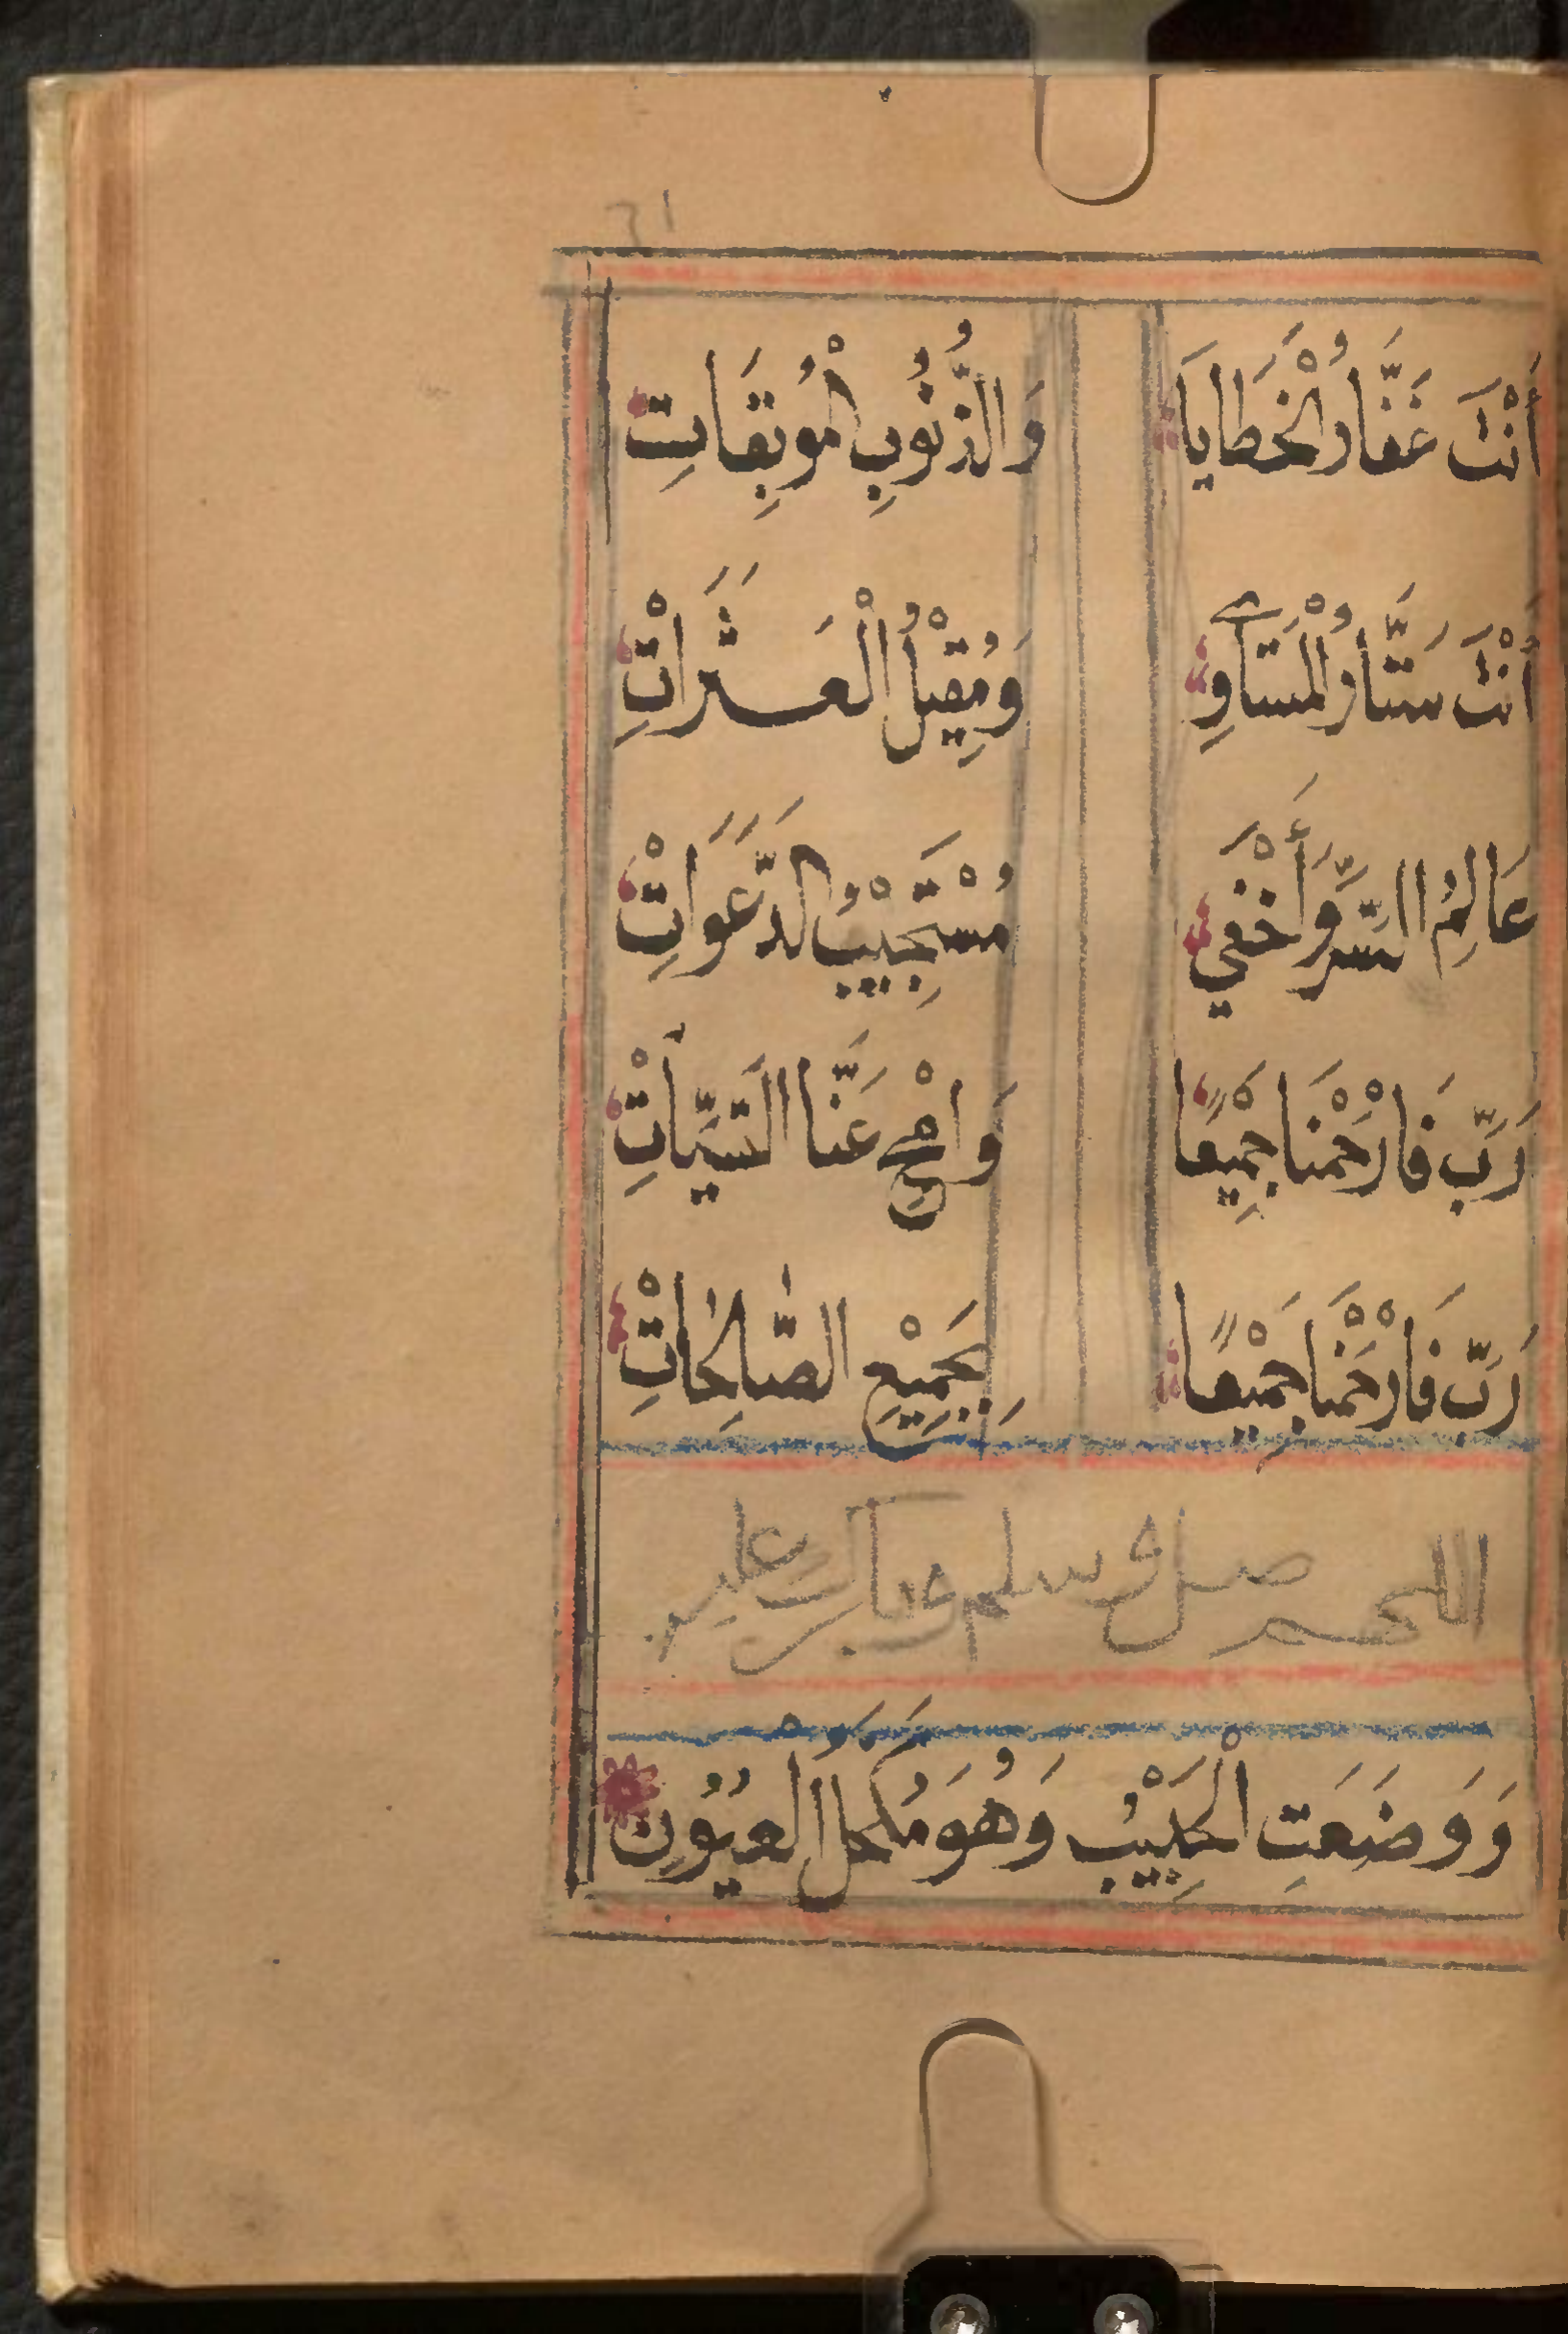 أَنْتَ غَفَّارُ الْخَطَايَا وَالذُّنُوبِ الْمُوبِقَاتِ
أَنْتَ سَتَّارُ الْمَسَاوِي وَمُقِيْلُ الْعَثَرَاتِ
عَالِمُ السِّرِّ وَأَخْفَي مُسْتَجِيْبُ الدَّعَوَاتِ
رَبِّ فَارْحَمْنَا جَمِيْعًا وَامْحُ عَنَّا السَّيِّأَتِ
رَبِّ فَارْحَمْنَا جَمِيْعًا بِجَمِيْعِ الصَّالِحَاتِ
اللهم صل وسلم وبارك عليه
وَوَضَعَتِ الْحَبِيْبُ وَهُوَ مُكَحَّلُ الْعُيُوْنِ